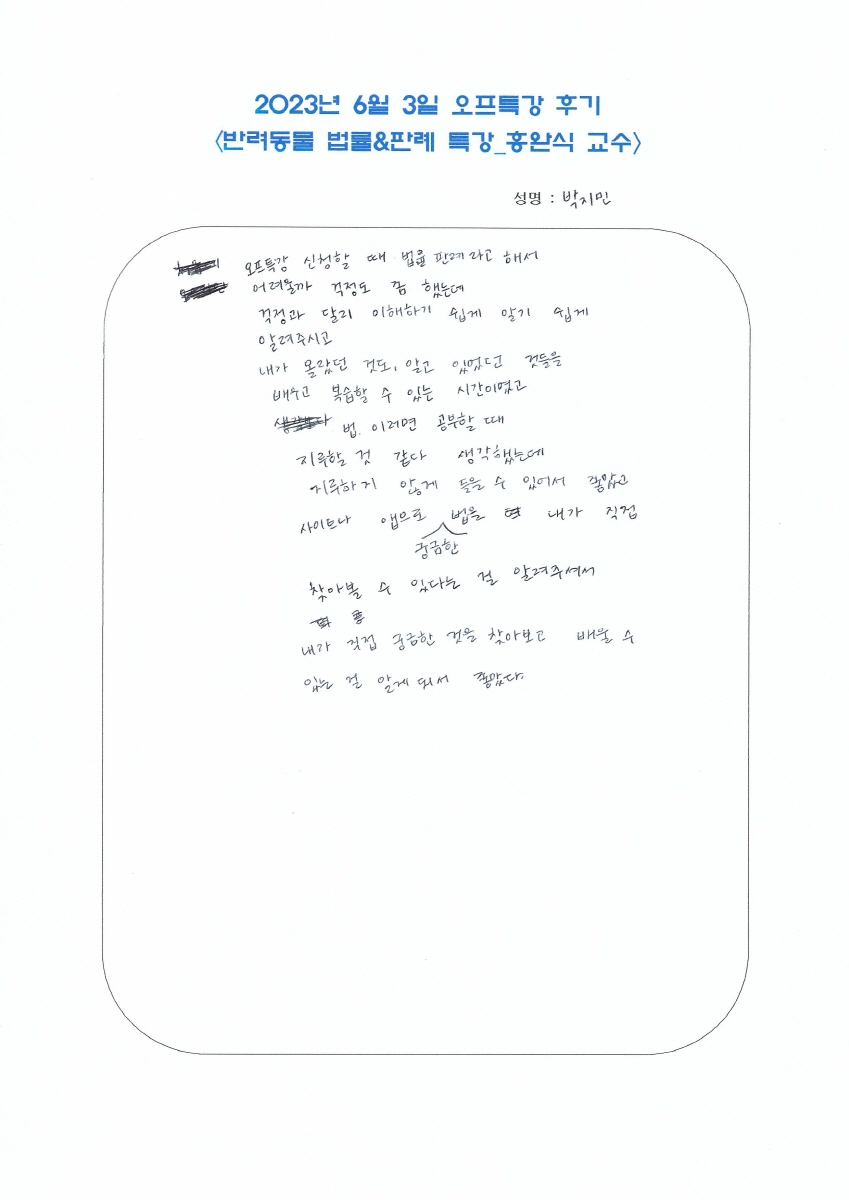 2023년 6월 3일 오프특강 후기
<반려동물 법률&판례 특강_홍완식 교수>
성명 : 박지민
오프특강 신청할 때 법률 판례라고 해서
어려울까 걱정도 좀 했는데
걱정과 달리 이해하기 쉽게 알기 쉽게
알려주시고
내가 몰랐던 것도, 알고 있었던 것들을
배우고 복습할 수 있는 시간이였고
법. 이러면 공부할 때
지루할 것 같다 생각했는데
지루하지 않게 들을 수 있어서 좋았고
사이트나 앱으로 법을 내가 직접
궁금한
찾아볼 수 있다는 걸 알려주셔서
내가 직접 궁금한 것을 찾아보고 배울 수
있는 걸 알게 되서 좋았다.